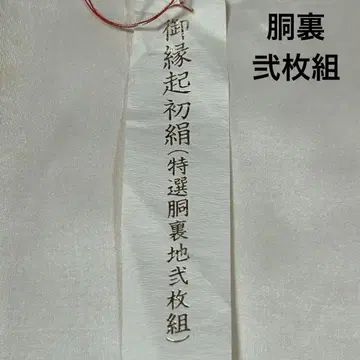 胴裏
弐枚組
御縁起初絹(特選胴裏地弐枚組)